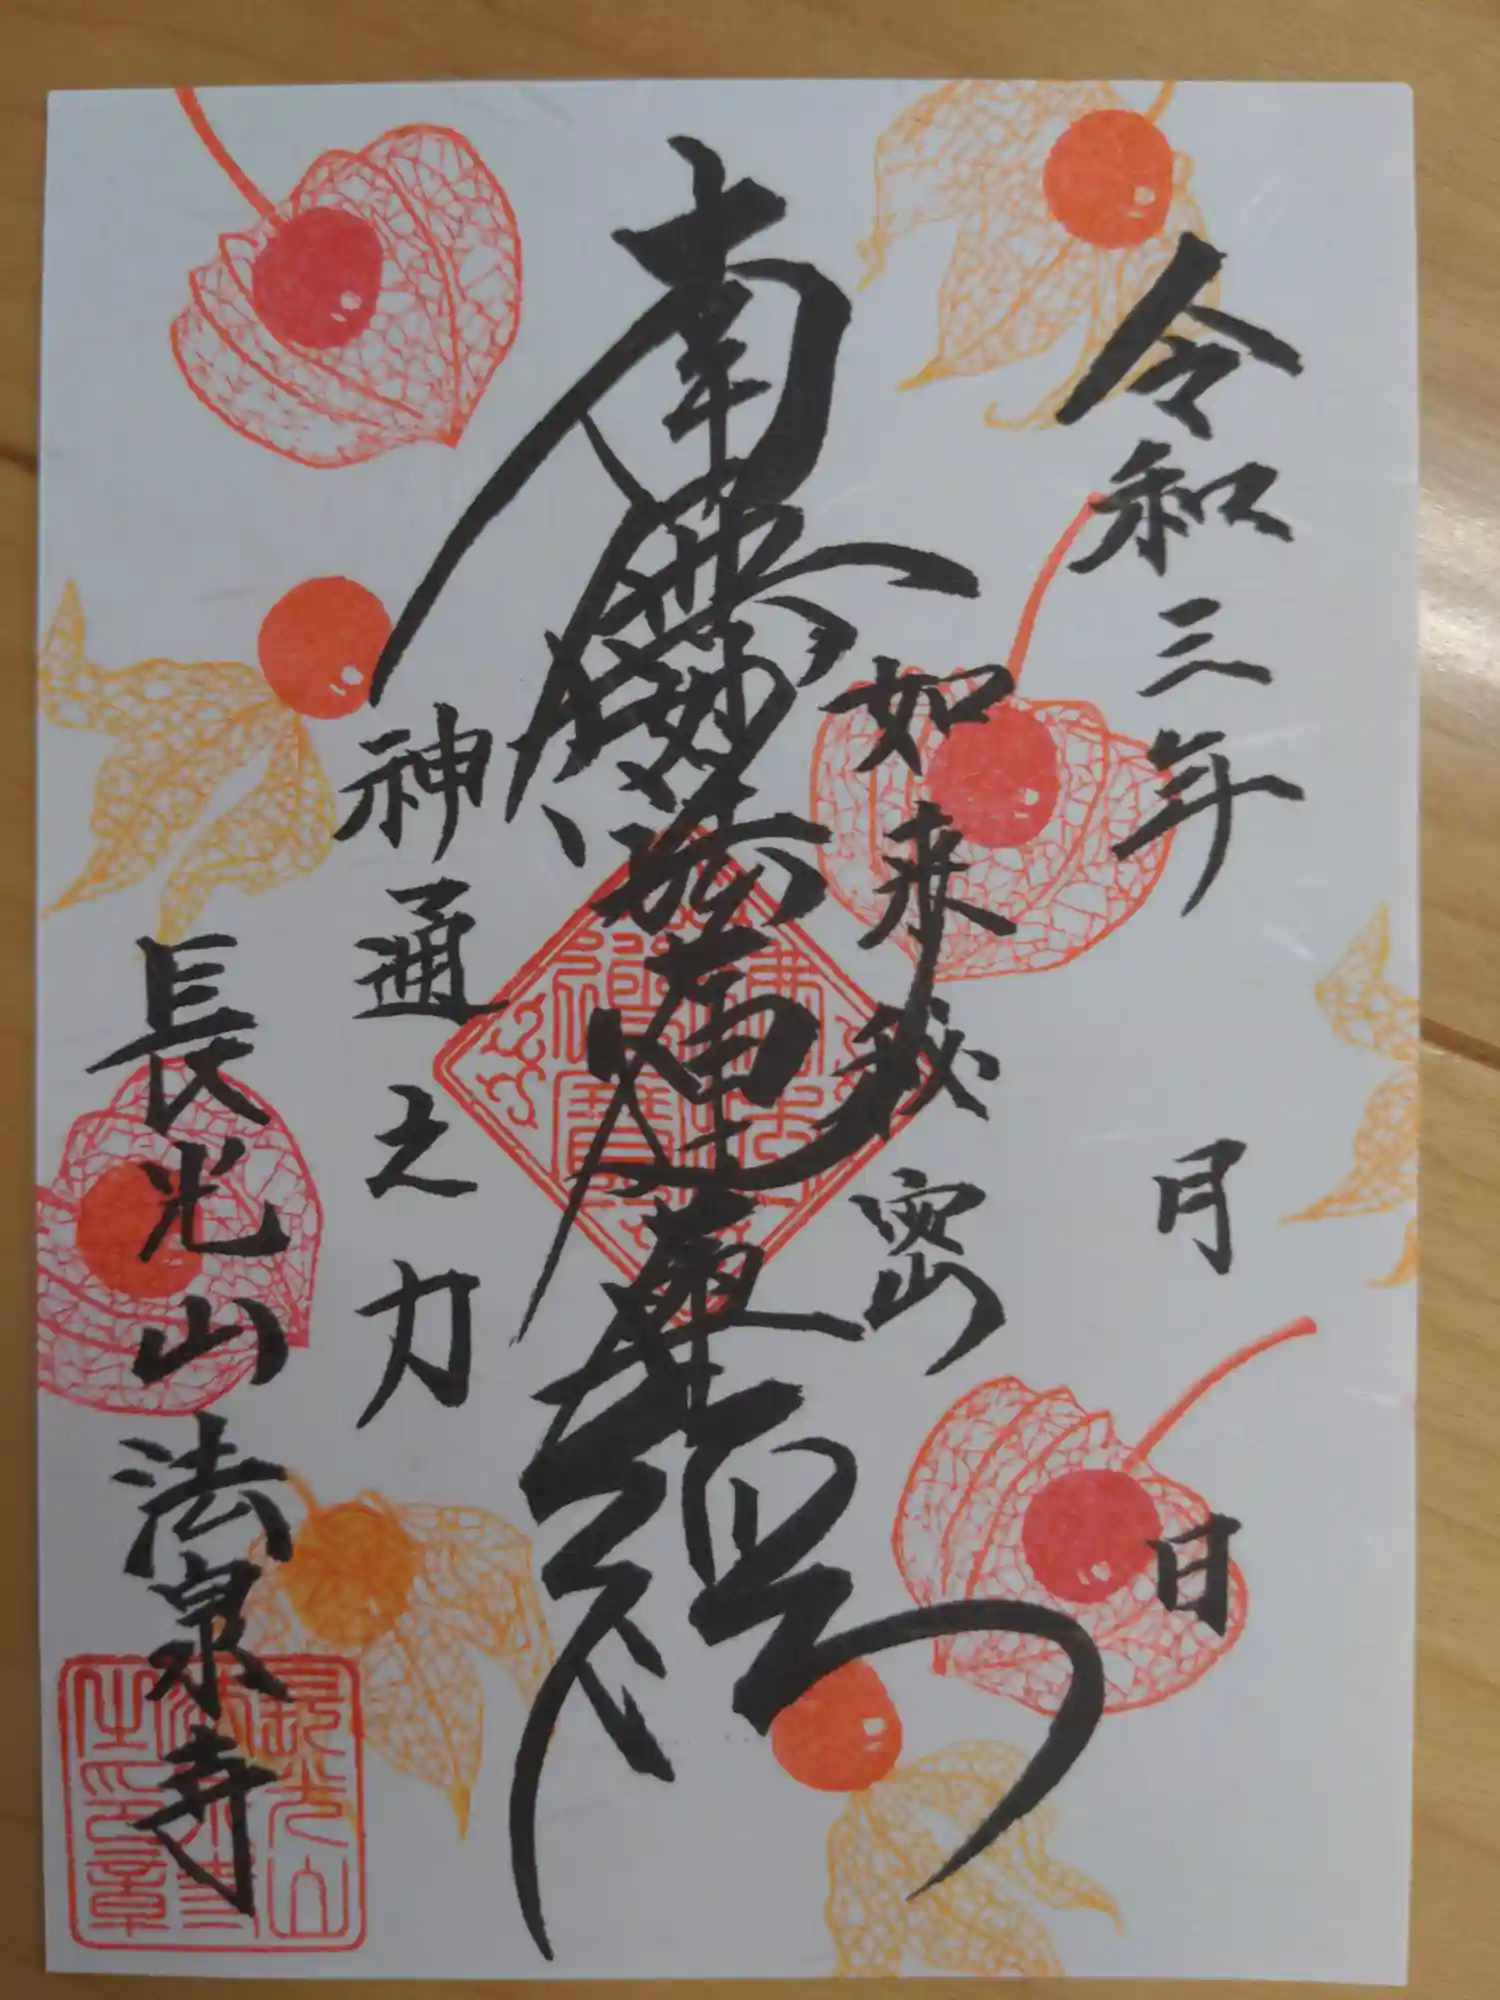 令和三年 月 日
如来秘密
南無妙法蓮華経
神通之力
長光山法泉寺
長光山法泉寺之印章